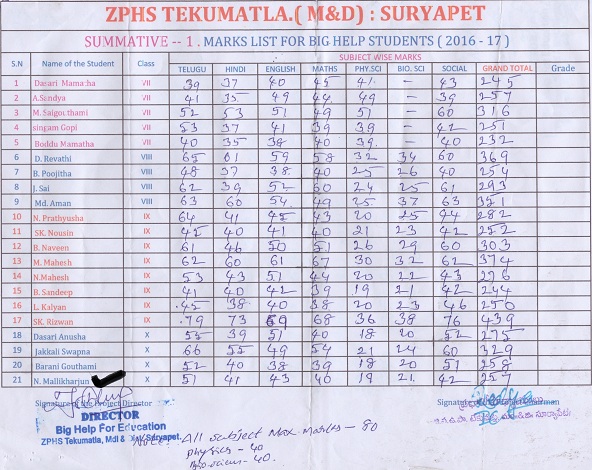 ZPHS TEKUMATLA.( M&D) : SURYAPET
SUMMATIVE -- 1 . MARKS LIST FOR BIG HELP STUDENTS ( 2016 - 17 )
S.N Name of the Student Class SUBJECT WISE MARKS Grade
TELUGU HINDI ENGLISH MATHS PHY.SCI BIO. SCI SOCIAL GRAND TOTAL
1 Dasari Mamatha VII 39 37 40 45 41 - 43 245
2 A.Sandya VII 41 35 49 44 49 - 39 257
3 M. Saigouthami VII 52 53 51 49 51 - 60 316
4 singam Gopi VII 53 37 41 39 39 - 42 251
5 Boddu Mamatha VII 40 35 38 40 39 - 40 232
6 D. Revathi VIII 65 61 59 58 32 34 60 369
7 B. Poojitha VIII 48 37 38 40 25 26 40 254
8 J. Sai VIII 62 39 52 60 24 25 61 293
9 Md. Aman VIII 63 60 54 49 25 37 63 351
10 N. Prathyusha IX 64 41 45 43 20 25 44 282
11 SK. Nousin IX 45 40 41 40 21 23 42 252
12 B. Naveen IX 61 46 50 51 26 29 60 303
13 M. Mahesh IX 62 60 61 67 30 32 62 374
14 N.Mahesh IX 53 43 51 44 20 22 43 276
15 B. Sandeep IX 41 40 42 39 19 21 42 244
16 L. Kalyan IX 45 38 40 38 20 23 46 250
17 SK. Rizwan IX 79 73 69 68 36 38 76 439
18 Dasari Anusha X 55 39 51 40 18 20 52 275
19 Jakkali Swapna X 66 55 49 54 21 24 60 329
20 Barani Gouthami X 52 40 38 39 18 20 51 258
21 N. Mallikharjun X 51 41 43 40 19 21 42 257
Signature of the Project Director
DIRECTOR
Big Help For Education
ZPHS Tekumatla, Mdl & Suryapet.
Note: All subject Max. Marks - 80
physics - 40
Bio science - 40.